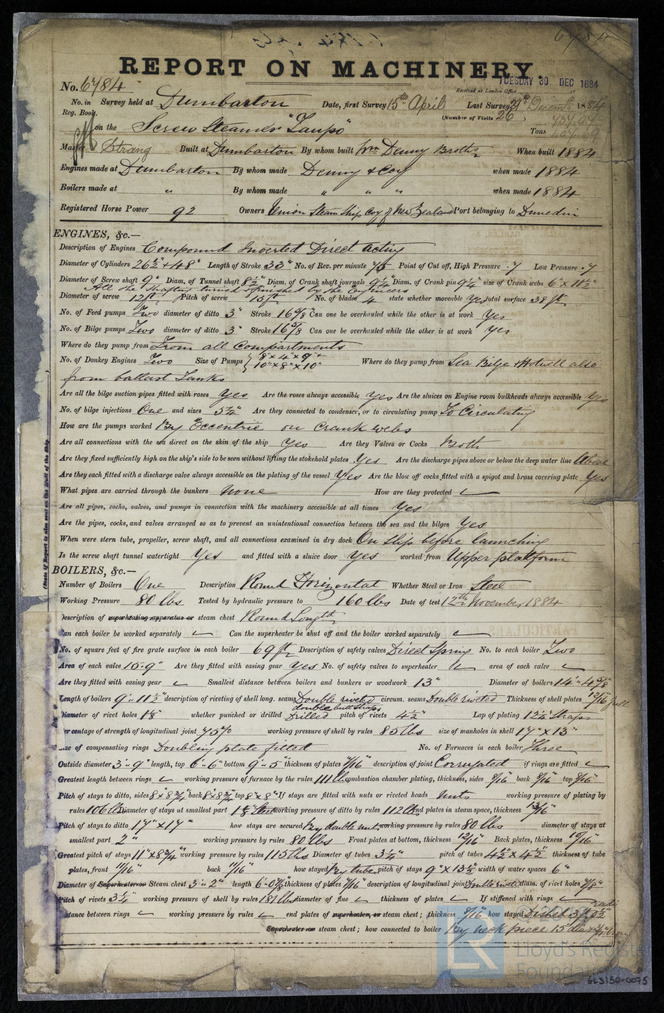 6784
REPORT ON MACHINERY.
No. 6784
TUESDAY 30 DEC 1884
Received at London Office
No. in Reg. Book. Survey held at Dumbarton Date, first Survey 15th April Last Survey 1884
(Number of Visits 26)
on the Screw Steamer "Taupo" Tons
Master Strang Built at Dumbarton By whom built Wm Denny & Brothers When built 1884
Engines made at Dumbarton By whom made Denny & Coy when made 1884
Boilers made at " By whom made " " " when made 1884
Registered Horse Power 92 Owners Union Steam Ship Coy of New Zealand Port belonging to Dunedin
ENGINES, &c.—
Description of Engines Compound Inverted Direct Acting
Diameter of Cylinders 26½" & 48" Length of Stroke 33" No. of Rev. per minute 75 Point of Cut off, High Pressure .7 Low Pressure .7
Diameter of Screw shaft 9" Diam. of Tunnel shaft 8½" Diam. of Crank shaft journals 9¼" Diam. of Crank pin 9½" size of Crank webs 6" x 11½"
All the shafting turned & finished by the Engineers
Diameter of screw 12ft Pitch of screw 15ft No. of blades 4 state whether moveable Yes total surface 38 ft
No. of Feed pumps Two diameter of ditto 3" Stroke 16⅝" Can one be overhauled while the other is at work Yes
No. of Bilge pumps Two diameter of ditto 3" Stroke 16⅝" Can one be overhauled while the other is at work Yes
Where do they pump from From all Compartments
No. of Donkey Engines Two Size of Pumps { 8" x 4" x 9" 10" x 8" x 10" Where do they pump from Sea Bilge & Hotwell also
from ballast Tanks
Are all the bilge suction pipes fitted with roses Yes Are the roses always accessible Yes Are the sluices on Engine room bulkheads always accessible Yes
No. of bilge injections One and sizes 5½" Are they connected to condenser, or to circulating pump To Circulating
How are the pumps worked By Eccentric on Crank webs
Are all connections with the sea direct on the skin of the ship Yes Are they Valves or Cocks Both
Are they fixed sufficiently high on the ship's side to be seen without lifting the stokehold plates Yes Are the discharge pipes above or below the deep water line Above
Are they each fitted with a discharge valve always accessible on the plating of the vessel Yes Are the blow off cocks fitted with a spigot and brass covering plate Yes
What pipes are carried through the bunkers None How are they protected
Are all pipes, cocks, valves, and pumps in connection with the machinery accessible at all times Yes
Are the pipes, cocks, and valves arranged so as to prevent an unintentional connection between the sea and the bilges Yes
When were stern tube, propeller, screw shaft, and all connections examined in dry dock On Slip before launching
Is the screw shaft tunnel watertight Yes and fitted with a sluice door Yes worked from Upper platform
BOILERS, &c.—
Number of Boilers One Description Round Horizontal Whether Steel or Iron Steel
Working Pressure 80 lbs Tested by hydraulic pressure to 160 lbs Date of test 12th November, 1884
Description of superheating apparatus or steam chest Round Longl.
Can each boiler be worked separately Can the superheater be shut off and the boiler worked separately
No. of square feet of fire grate surface in each boiler 69 ft Description of safety valves Direct Spring No. to each boiler Two
Area of each valve 10.9" Are they fitted with easing gear Yes No. of safety valves to superheater area of each valve
Are they fitted with easing gear Smallest distance between boilers and bunkers or woodwork 13" Diameter of boilers
Length of boilers 9'-11½" description of riveting of shell long. seams Double riveted double butt straps circum. seams Double riveted Thickness of shell plates
Diameter of rivet holes whether punched or drilled Drilled pitch of rivets 4½" Lap of plating 12½" Straps
Percentage of strength of longitudinal joint 75% working pressure of shell by rules 85 lbs size of manholes in shell 17" x 13"
Size of compensating rings Doubling plate fitted No. of Furnaces in each boiler Three
Outside diameter 3'-9" length, top 6'-6" bottom 9'-5" thickness of plates description of joint Corrugated if rings are fitted
Greatest length between rings working pressure of furnace by the rules 111 lbs combustion chamber plating, thickness, sides 9/16" back 9/16" top 9/16"
Pitch of stays to ditto, sides 8 x 8¾" back 8 x 8¾" top 8" x 8" If stays are fitted with nuts or riveted heads nuts working pressure of plating by
rules 106 lbs Diameter of stays at smallest part working pressure of ditto by rules 112 lbs end plates in steam space, thickness
Pitch of stays to ditto 17" x 17" how stays are secured by double nuts working pressure by rules 80 lbs diameter of stays at
smallest part 2" working pressure by rules 80 lbs Front plates at bottom, thickness Back plates, thickness
Greatest pitch of stays 11" x 8¾" working pressure by rules 115 lbs Diameter of tubes 3¼" pitch of tubes 4½ x 4½" thickness of tube
plates, front 11/16" back 11/16" how stayed by tubes pitch of stays 9" x 13½" width of water spaces 6"
Diameter of Superheater or Steam chest 3'-2" length 6'-0¾" thickness of plates description of longitudinal joint diam. of rivet holes
Pitch of rivets 3¼" working pressure of shell by rules 181 lbs diameter of flue thickness of plates If stiffened with rings
distance between rings working pressure by rules end plates of superheater, or steam chest; thickness how stayed
Superheater or steam chest; how connected to boiler By neck piece 15" diam
Lloyd's Register Foundation
GLS150-0075